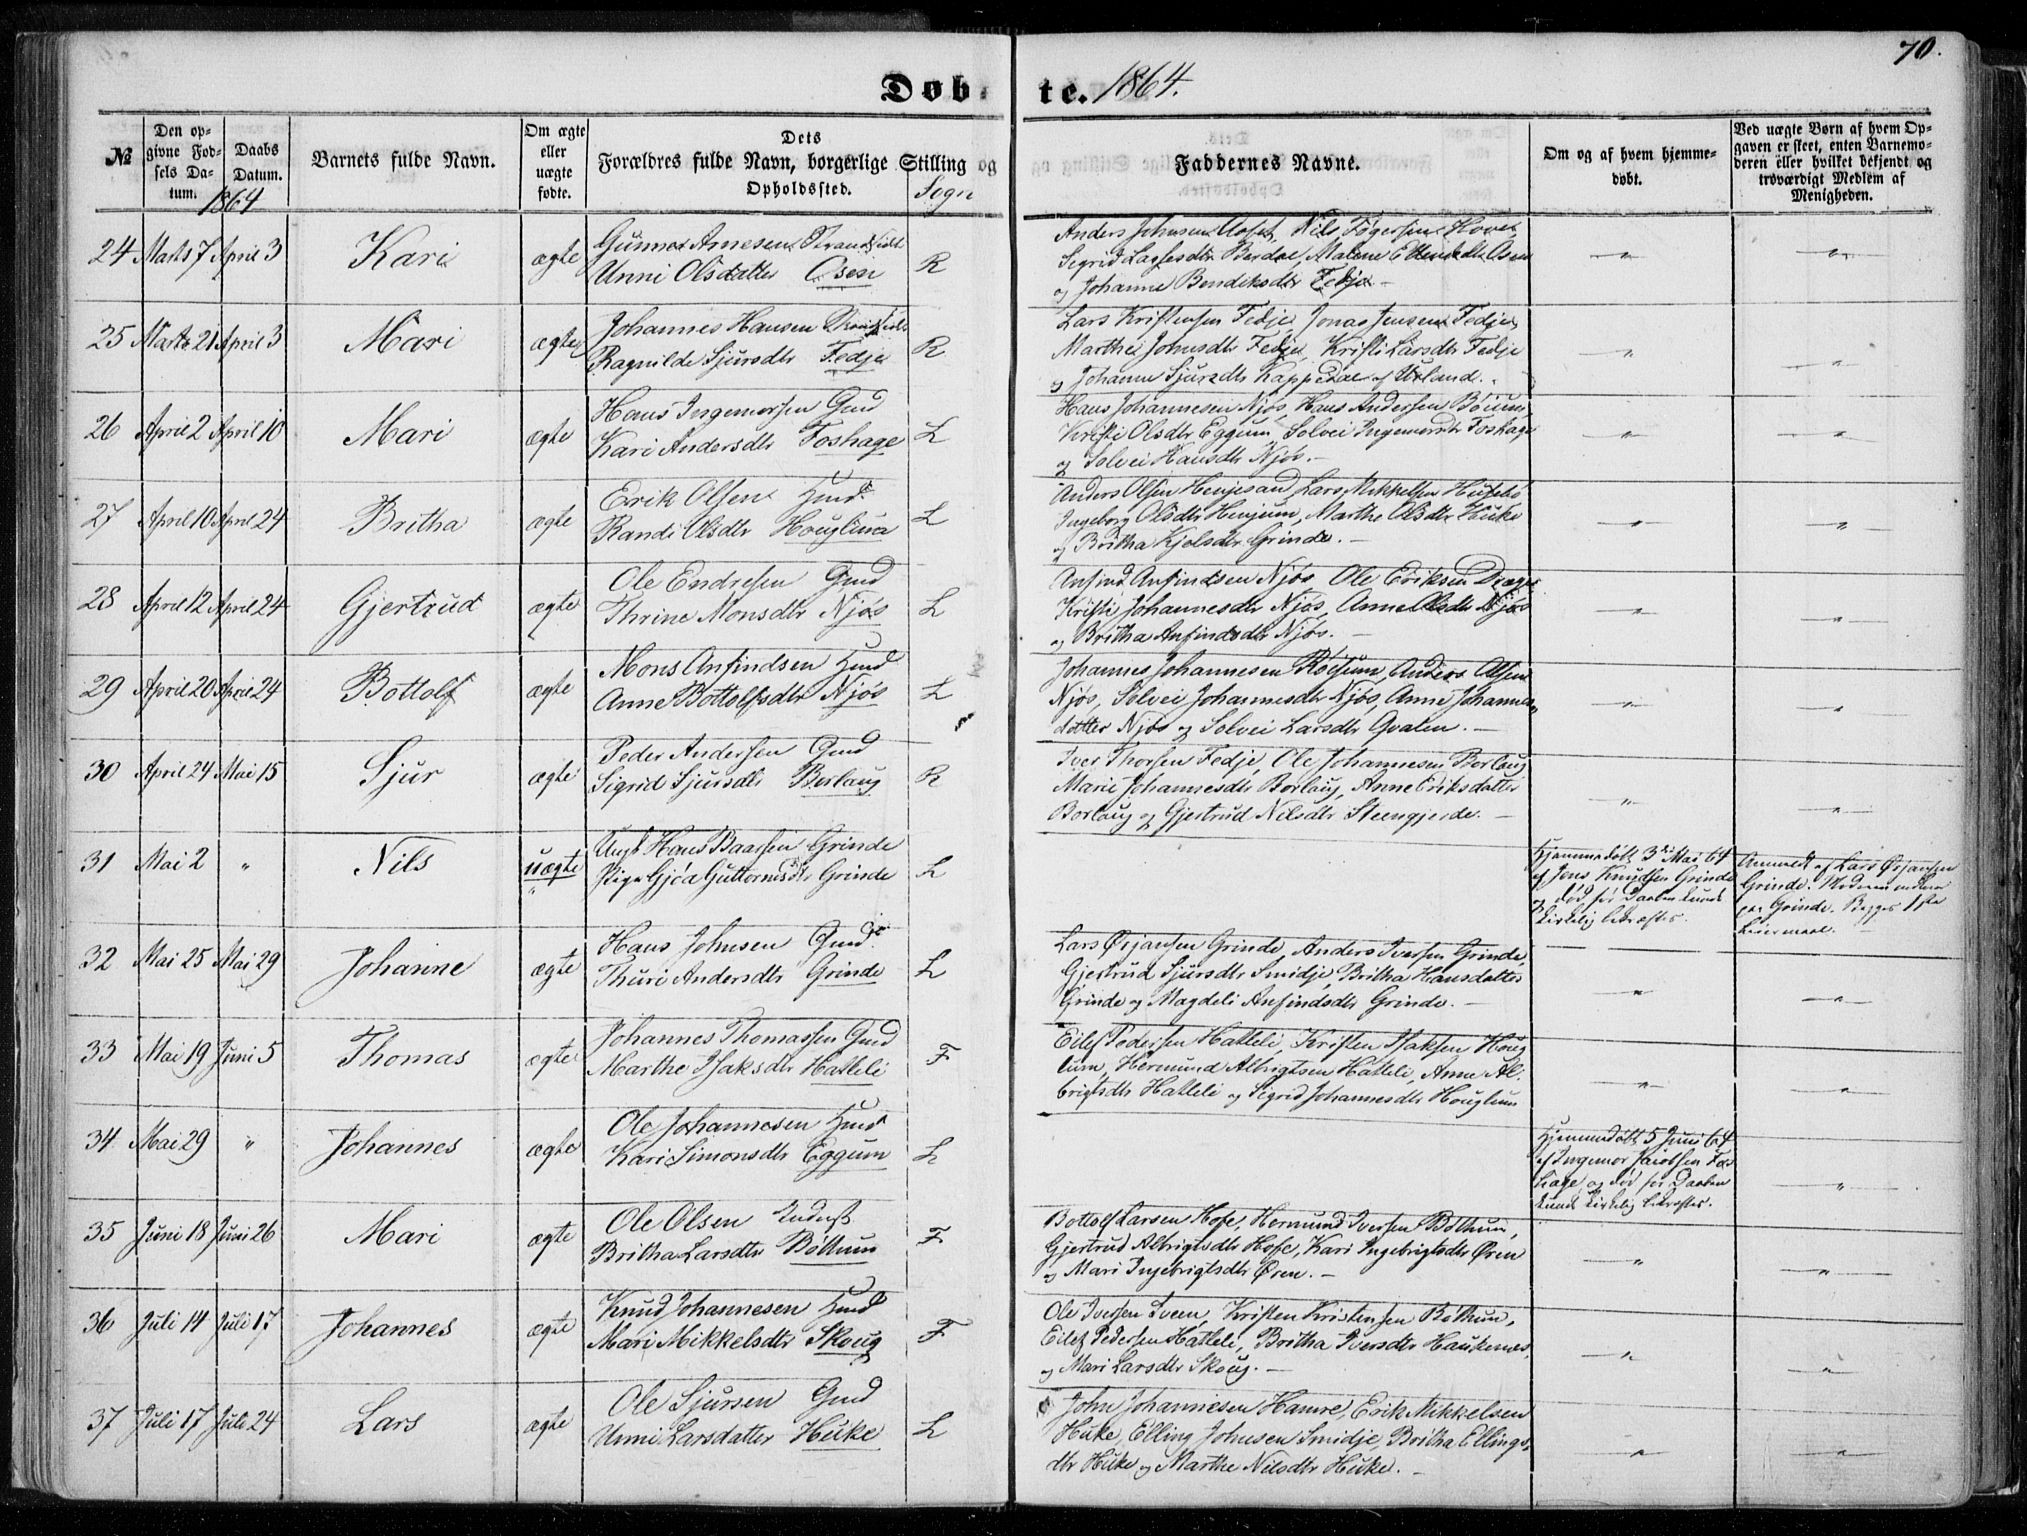 70.
Døb=
te. 1864.
№
Den op=
givne Fød=
sels Da=
tum.
Daabs
Datum.
1864
Barnets fulde Navn.
Om ægte
eller
uægte
fødte.
Dets
Forældres fulde Navn, borgerlige Stilling og
Opholdssted.
Sogn
Faddernes Navne.
Om og af hvem hjemme=
døbt.
Ved uægte Børn af hvem Op=
gaven er skeet, enten Barnemo=
deren eller hvilket bekjendt og
troværdigt Medlem af
Menigheden.
24 Marts 7 April 3 Kari ægte
Gunnar Arnesen
Unni Olsdatter Osen R
Anders Johnsen Nils
Sigrid Berdal, Malene Osen
og Johanne Bendiksdtr Fedje
25 Marts 21 April 3 Mari ægte
Johannes Hansen
Ragnilde Sjursdtr Fedje R
Lars Kristensen Fedje, Jonas Jensen Fedje
Marthe Fedje, Kristi Larsdtr Fedje
og Johanne Sjursdtr Kappedal af Urland.
26 April 2 April 10 Mari ægte
Hans Ingemorsen Gmd
Kari Andersdtr Foshage L
Hans Johannesen Njøs, Hans Andersen
Kristi Olsdtr Eggum, Solvei Ingemorsdtr Foshage
og Solvei Hansdtr Njøs.
27 April 10 April 24 Britha ægte
Erik Olsen Hmd
Randi Olsdtr Houglum L
Anders Olsen Lars Mikkelsen Husebø
Ingeborg Olsdtr Henjum, Marthe Olsdtr Huke
og Britha Kjelsdtr Grinde.
28 April 12 April 24 Gjertrud ægte
Ole Endresen Gmd
Thrine Monsdtr Njøs L
Anfind Anfindsen Njøs, Ole Eriksen
Kristi Johannesdtr Njøs, Anne Olsdtr Njøs
og Britha Anfindsdtr Njøs.
29 April 20 April 24 Bottolf ægte
Mons Anfindsen Hmd
Anne Bottolfsdtr Njøs L
Johannes Johannesen Røesum, Anders Olsen
Njøs, Solvei Johannesdtr Njøs, Anne Johannes=
datter Njøs og Solvei Larsdtr Qvalen.
30 April 24 Mai 15 Sjur ægte
Peder Andersen Gmd
Sigrid Sjursdtr Borlaug R
Iver Thorsen Fedje, Ole Johannesen Borlaug
Marie Johannesdtr Borlaug, Anne Eriksdatter
Borlaug og Gjertrud Nilsdtr Steengjerde.
31 Mai 2 " Nils uægte
Ungk Hans Baarsen Grinde
Pige Gjøa Guttormsdtr Grinde L
Hjemmedøbt 3die Mai 64
af Jens Knudsen Grinde
og død før Daaben kunde
kirkelig bekræftes.
Anmeldt af Lars Ørjansen
Grinde. Moderen
paa Grinde. Begges 1ste
Leiermaal.
32 Mai 25 Mai 29 Johanne ægte
Hans Johnsen Gmd
Thuri Andersdtr Grinde L
Lars Ørjansen Grinde, Anders Iversen Grinde,
Gjertrud Sjursdtr Smidje, Britha Hansdatter
Grinde og Magdeli Anfindsdtr Grinde.
33 Mai 19 Juni 5 Thomas ægte
Johannes Thomassen Gmd
Marthe Isaksdtr Hatleli F
Eilef Pedersen Hatleli, Kristen Isaksen Houg
lum, Hermund Albrigtsen Hatleli, Anne Al=
brigtsdtr Hatleli og Sigrid Johannesdtr Houglum
34. Mai 29 " Johannes ægte
Ole Johannesen Hmd
Kari Simonsdtr Eggum L
Hjemmedøbt 5 Juni 64
af Ingemor Jacobsen Fos
hage og død før Daaben
kunde kirkelig bekræftes.
35 Juni 18 Juni 26 Mari ægte
Ole Olsen Inderst
Britha Larsdtr Bøthum F
Bottolf Larsen Hofe, Hermund Iversen Bøthum,
Gjertrud Albrigtsdtr Hofe, Kari Ingebrigtsdtr Øren
og Mari Ingebrigtsdtr Øren.
36 Juli 14 Juli 17 Johannes ægte
Knud Johannesen Hmd
Mari Mikkelsdtr Skoug F
Ole Iversen Sveen, Kristen Kristensen Bøthun,
Eilef Pedersen Hatleli, Britha Iversdtr Haukenæs,
og Mari Larsdtr Skoug.
37 Juli 17 Juli 24 Lars ægte
Ole Sjursen Gmd
Unni Larsdatter Huke L
John Johannesen Hamre, Erik Mikkelsen
Huke, Elling Johnsen Smidje, Britha Ellings=
dtr Huke og Marthe Nilsdtr Huke.